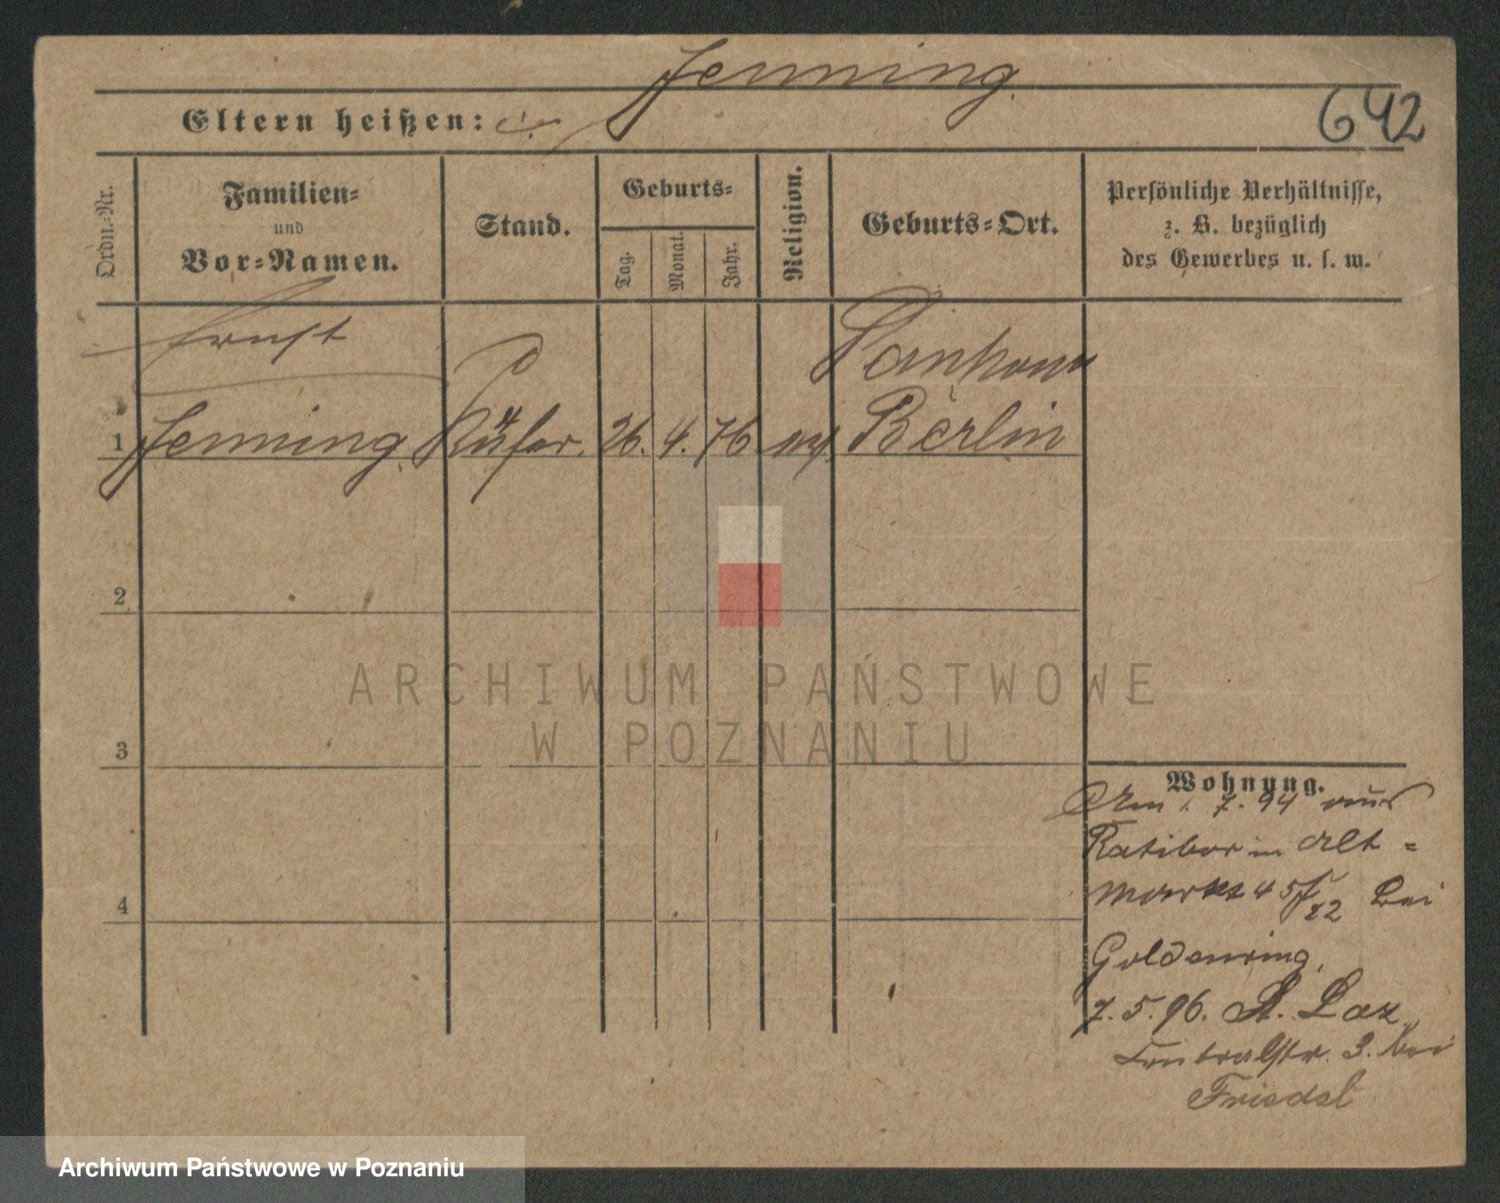 Jenning.
642
Eltern heißen:
Ordn.-Nr.
Familien-
und
Vor-Namen.
Stand.
Geburts-
Tag.
Monat.
Jahr.
Religion.
Geburts-Ort.
Persönliche Verhältnisse,
z. B. bezüglich
des Gewerbes u. s. w.
Ernst
Pankow
1 Jenning. Küfer. 26. 4. 76. Berlin
2
3
4
ARCHIWUM PAŃSTWOWE
W POZNANIU
Wohnung.
Am 1. 7. 94 aus
Ratibor in Alt-
markt 45 bei
Goldenring.
7. 5. 96. St. Laz.
Centralstr. 3. bei
Friedel
Archiwum Państwowe w Poznaniu